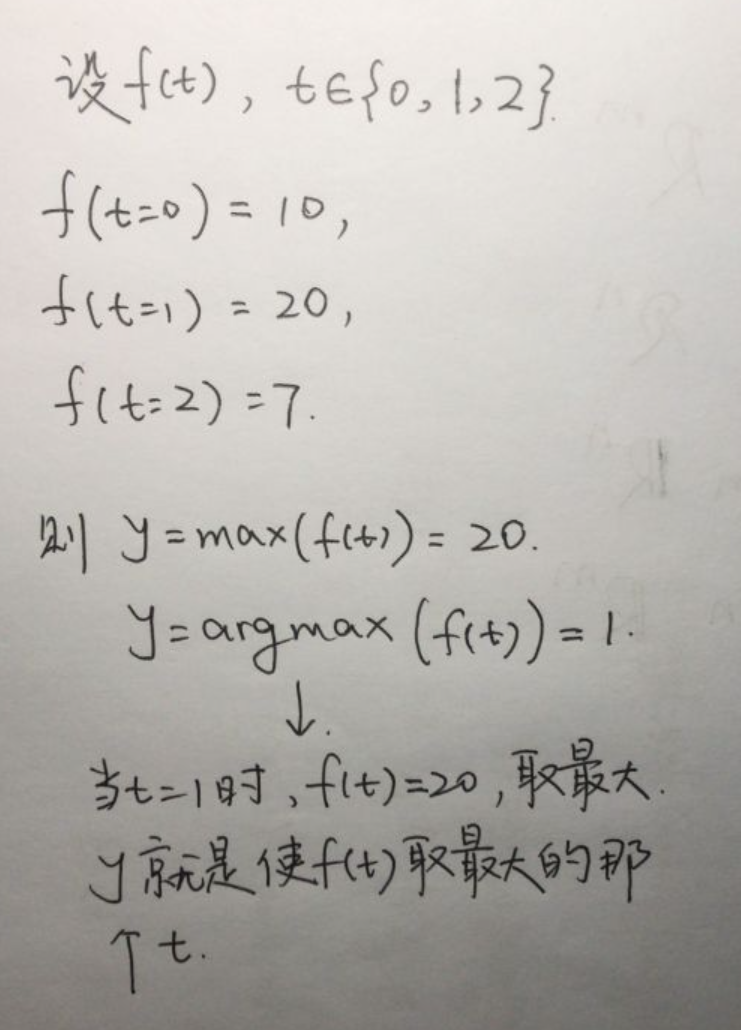 设f(t), t∈{0,1,2}.
f(t=0) = 10,
f(t=1) = 20,
f(t=2) =7.
则 y=max(f(t))= 20.
y=argmax(f(t))=1.
↓.
当t=1时,f(t)=20,取最大.
y就是使f(t)取最大的那
个t.